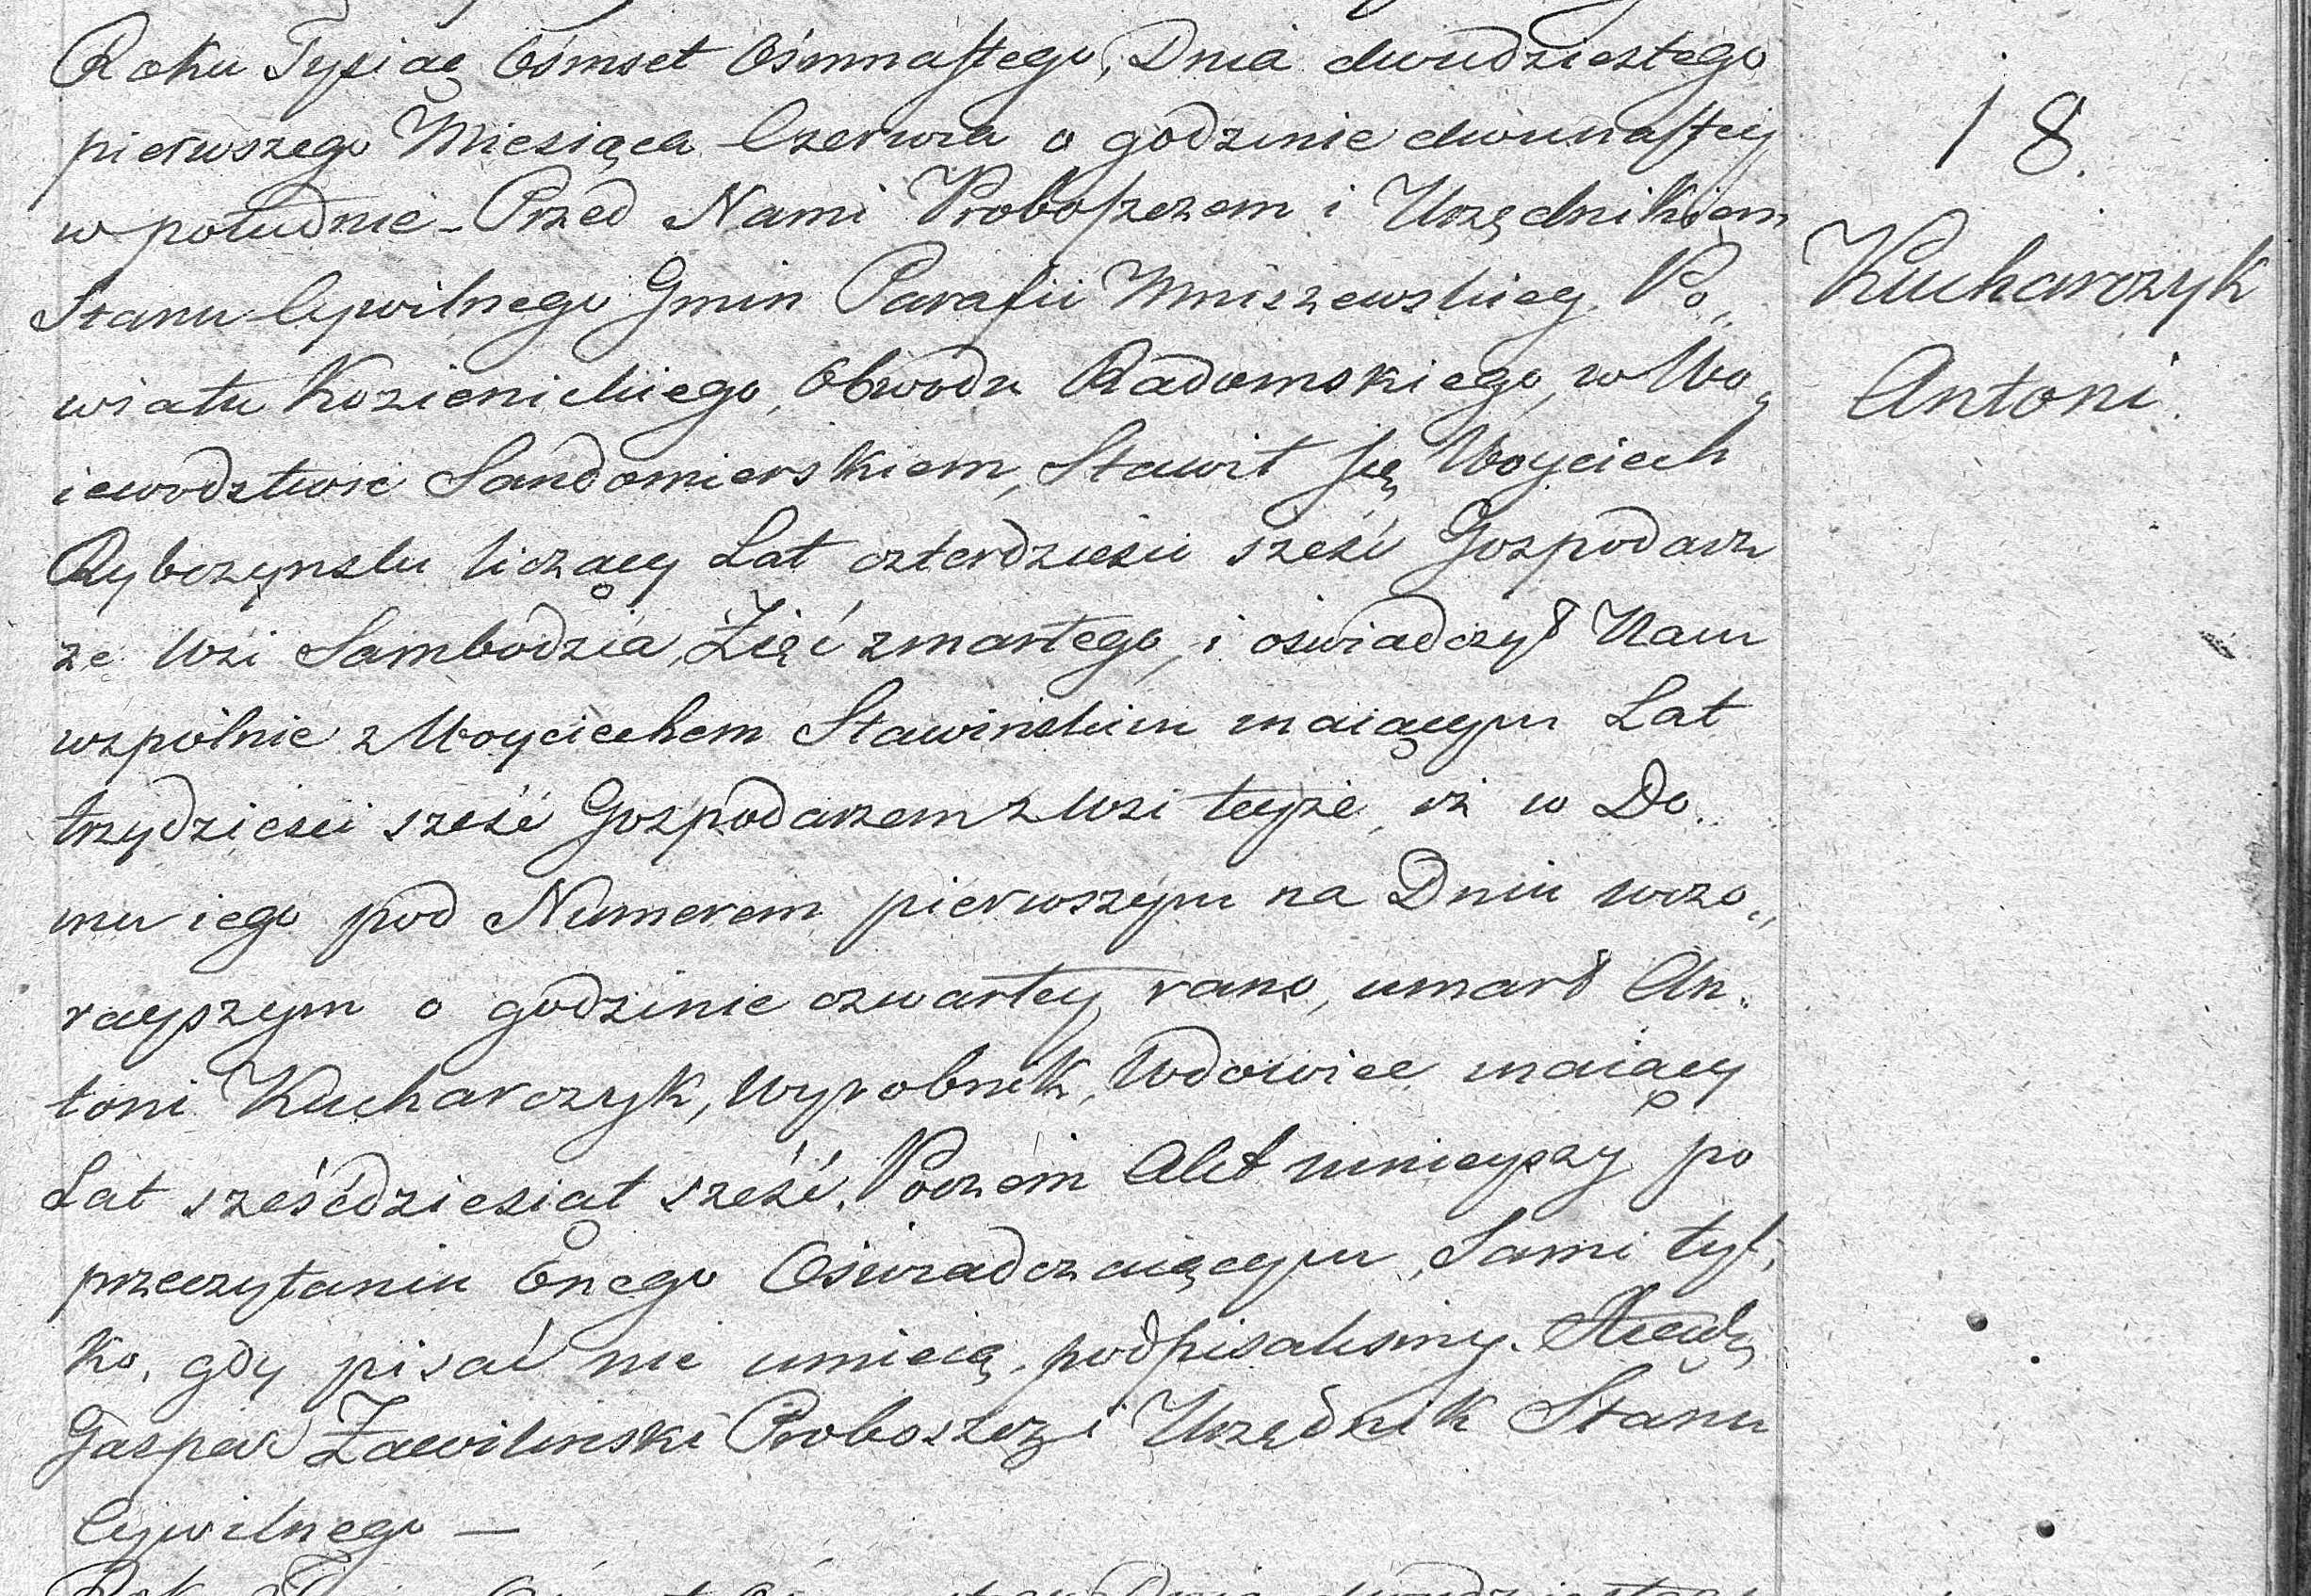 Roku Tysiąc Ośmset Ośmnastego, Dnia dwudziestego
pierwszego Miesiąca Czerwca o godzinie dwunastey
w południe – Przed Nami Proboszczem i Urzędnikiem
Stanu Cywilnego Gmin Parafii Mniszewskiey, Po„
wiatu Kozienickiego, Obwodu Radomskiego, w Wo„
iewodztwie Sandomierskiem, Stawił się Woyciech
Rybczynski liczący Lat czterdzieści sześć Gospodarz
ze Wsi Sambodzia, Zięć zmarłego, i oświadczył Nam
wspólnie z Woyciechem Stawińskim maiącym Lat
trzydzieści sześć Gospodarzem z Wsi teyże, iż w Do„
mu iego pod Numerem pierwszym na Dniu wczo„
rayszym o godzinie czwartey rano, umarł An„
toni Kucharczyk, Wyrobnik, Wdowiec maiący
Lat sześćdziesiąt sześć. Poczem Akt ninieyszy po
przeczytaniu Onego Oświadczaiącym, Sami tyl„
ko, gdy pisać nie umieią, podpisaliśmy.
Gaspar Zawilinski Proboszcz i Urzędnik Stanu
Cywilnego —
18.
Kucharczyk
Antoni.